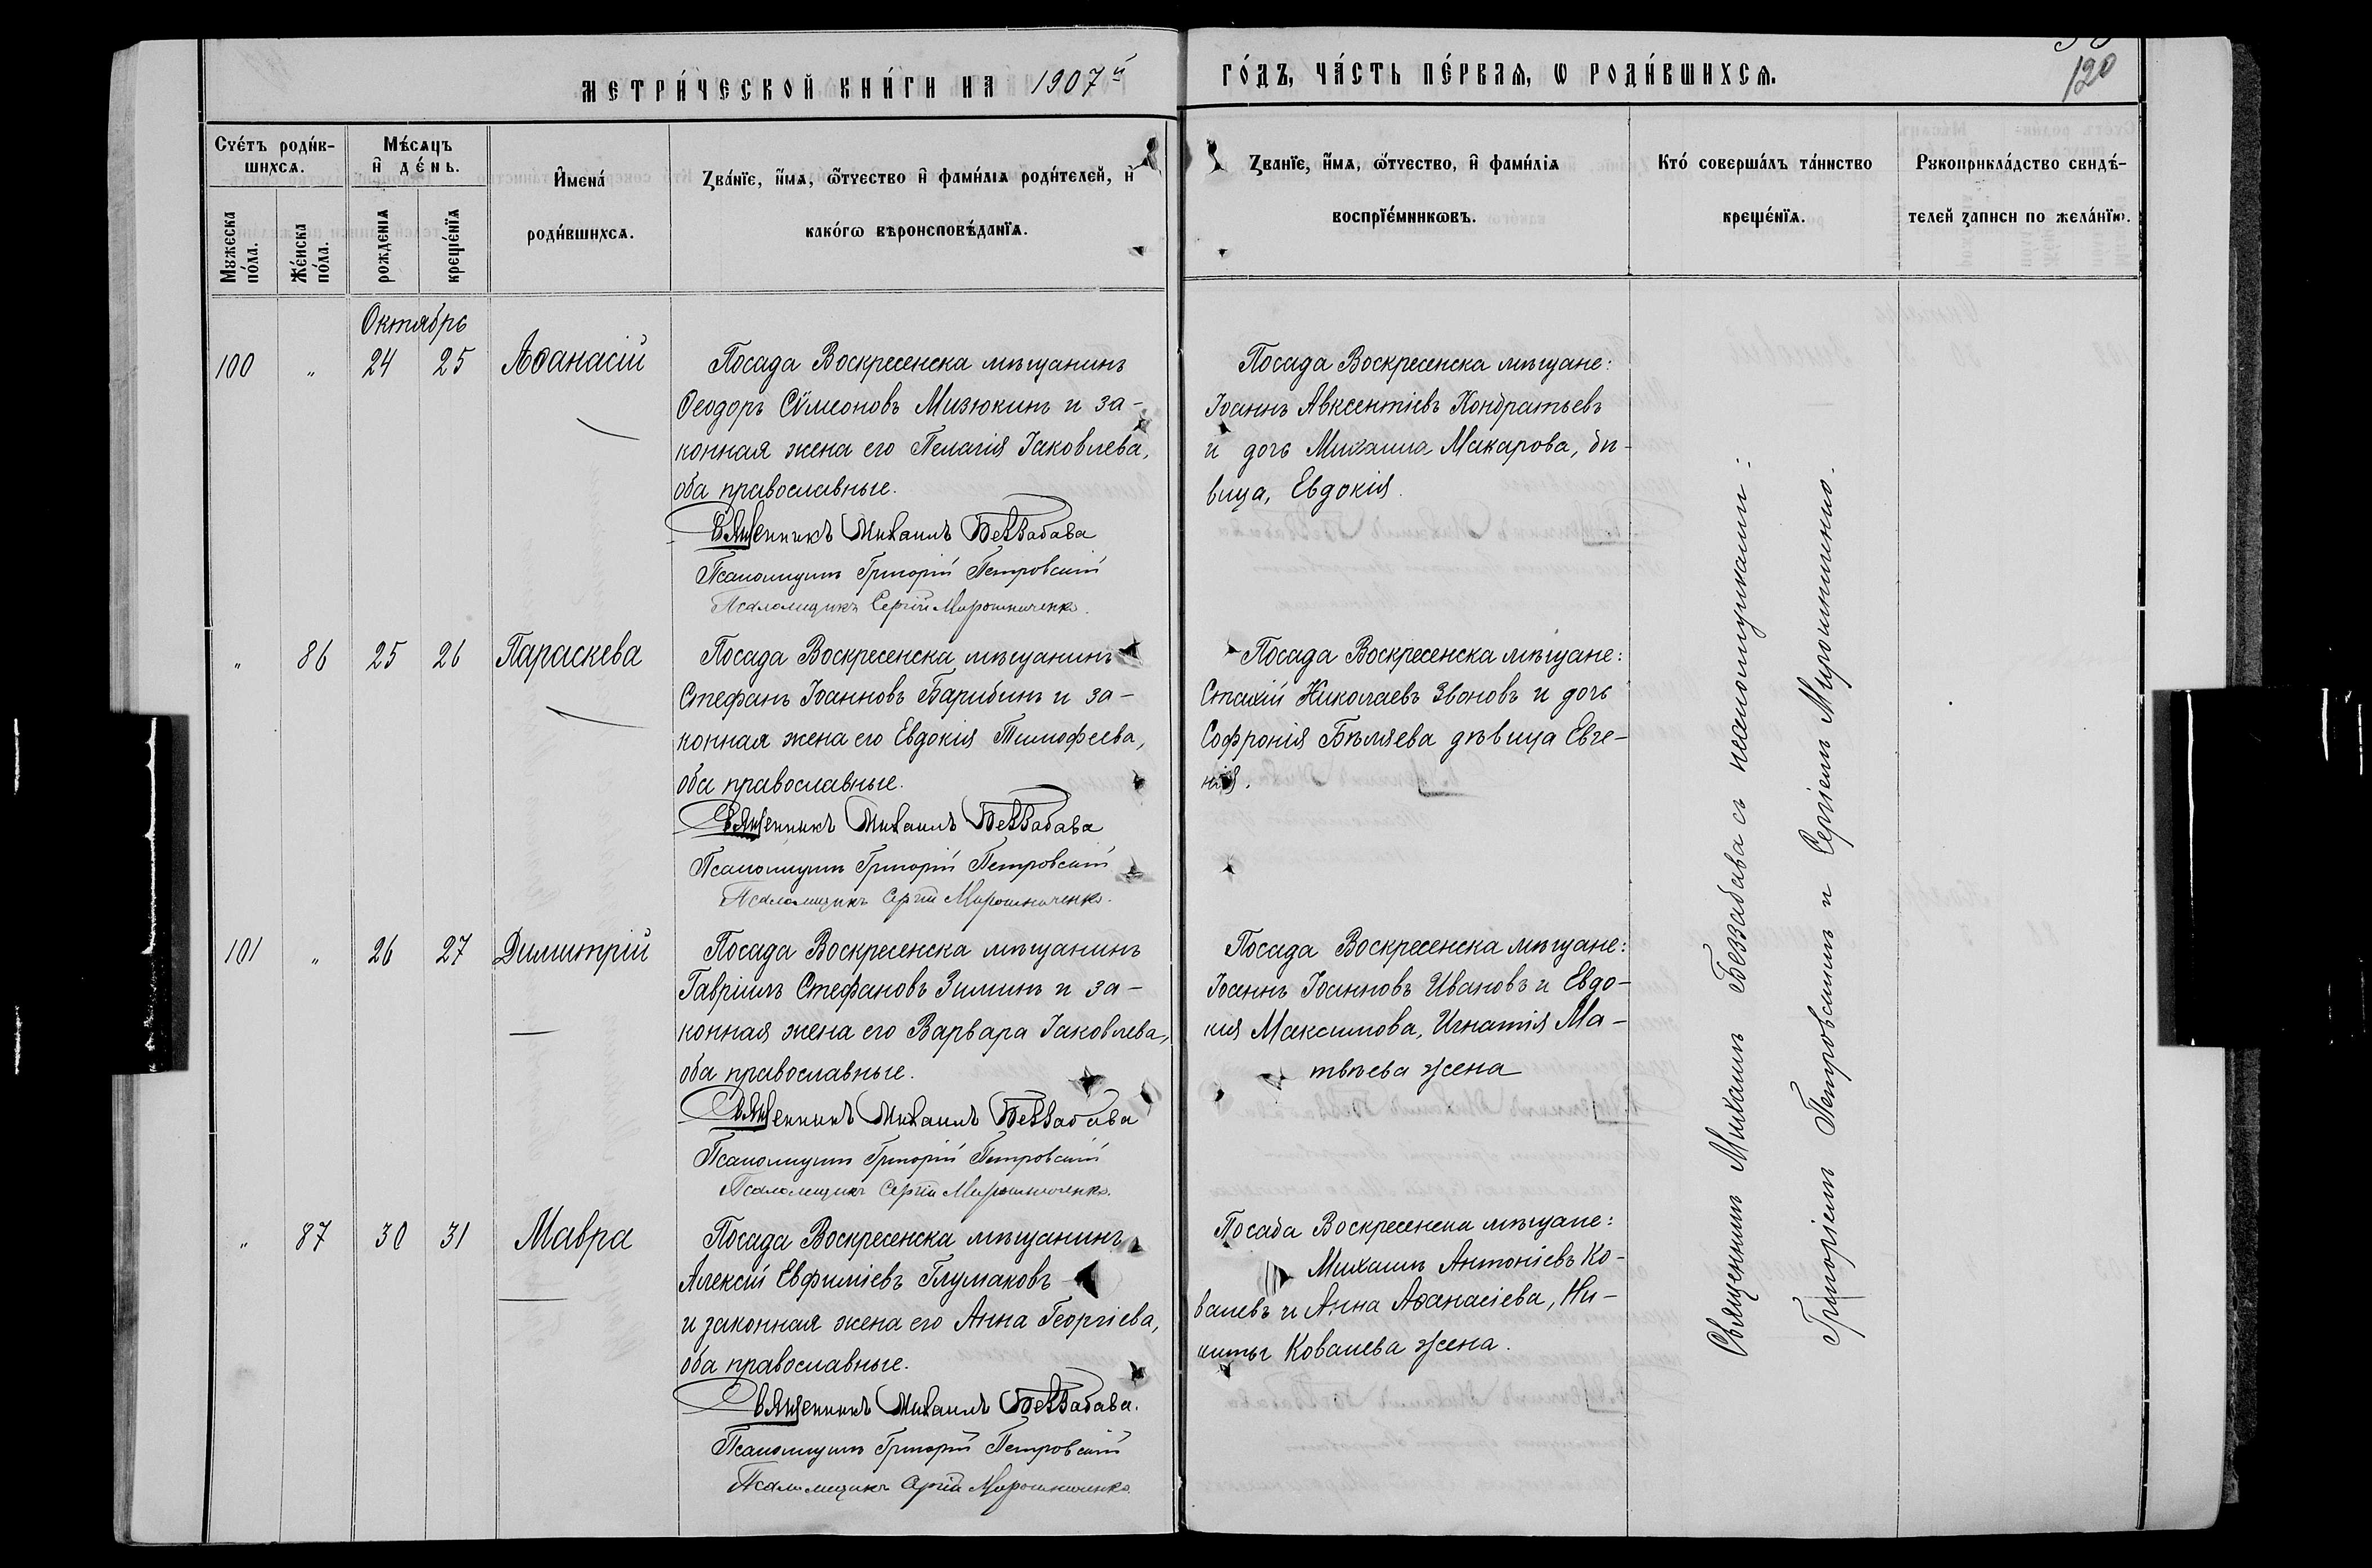 МЕТРИ́ЧЕСКОЙ КНИ́ГИ НА 1907й ГО́ДЪ, ЧА́СТЬ ПЕ́РВАѦ, Ѡ РОДИ́ВШИХСѦ.
120
Сче́тъ роди́в-
шихсѧ.
Мѣ́сѧцъ
и҆ де́нь.
Мꙋжеска
по́ла.
Же́нска
по́ла.
рожденїѧ
креще́нїѧ
И҆мена́
роди́вшихсѧ.
Зва́нїе, и҆́мѧ, ѻ҆́тчество и҆ фамѝлїѧ роди́телей, и҆
како́гѡ вѣроисповѣ́данїѧ.
Зва́нїе, и҆́мѧ, ѻ҆́тчество, и҆ фамѝлїѧ
воспрїе́мникѡвъ.
Кто́ соверша́лъ та́инство
креще́нїѧ.
Рꙋкоприкла́дство свидѣ́-
телей записи по жела́нїю.
Октябрь
100 " 24 25 Аѳанасій
Посада Воскресенска мѣщанинъ
Ѳеодоръ Сѵмеоновъ Мизюкинъ и за-
конная жена его Пелагія Іаковлева,
оба православные.
Священникъ Михаилъ Беззабава
Псаломщикъ Григорій Петровскій
Псаломщикъ Сергій Мирошниченко.
Посада Воскресенска мѣщане:
Іоаннъ Авксентіевъ Кондратьевъ
и дочь Михаила Макарова, дѣ-
вица, Евдокія.
" 86 25 26 Параскева
Посада Воскресенска мѣщанинъ
Стефанъ Іоанновъ Барибинъ и за-
конная жена его Евдокія Тимофеева,
оба православные.
Священникъ Михаилъ Беззабава
Псаломщикъ Григорій Петровскій
Псаломщикъ Сергій Мирошниченко.
Посада Воскресенска мѣщане:
Стахій Николаевъ Звоновъ и дочь
Софронія Бѣляева дѣвица Евге-
нія.
101 " 26 27 Димитрій
Посада Воскресенска мѣщанинъ
Гавріилъ Стефановъ Зиминъ и за-
конная жена его Варвара Іаковлева,
оба православные.
Священникъ Михаилъ Беззабава
Псаломщикъ Григорій Петровскій
Псаломщикъ Сергій Мирошниченко.
Посада Воскресенска мѣщане:
Іоаннъ Іоанновъ Ивановъ и Евдо-
кія Максимова, Игнатія Ма-
твѣева жена
" 87 30 31 Мавра
Посада Воскресенска мѣщанинъ
Алексій Евфиміевъ Глумаковъ
и законная жена его Анна Георгіева,
оба православные.
Священникъ Михаилъ Беззабава.
Псаломщикъ Григорій Петровскій
Псаломщикъ Сергій Мирошниченко.
Посада Воскресенска мѣщане:
Михаилъ Антоніевъ Ко-
валевъ и Анна Аѳанасіева, Ни-
киты Ковалева жена.
Священникъ Михаилъ Беззабава съ псаломщиками:
Григоріемъ Петровскимъ и Сергіемъ Мирошниченко.